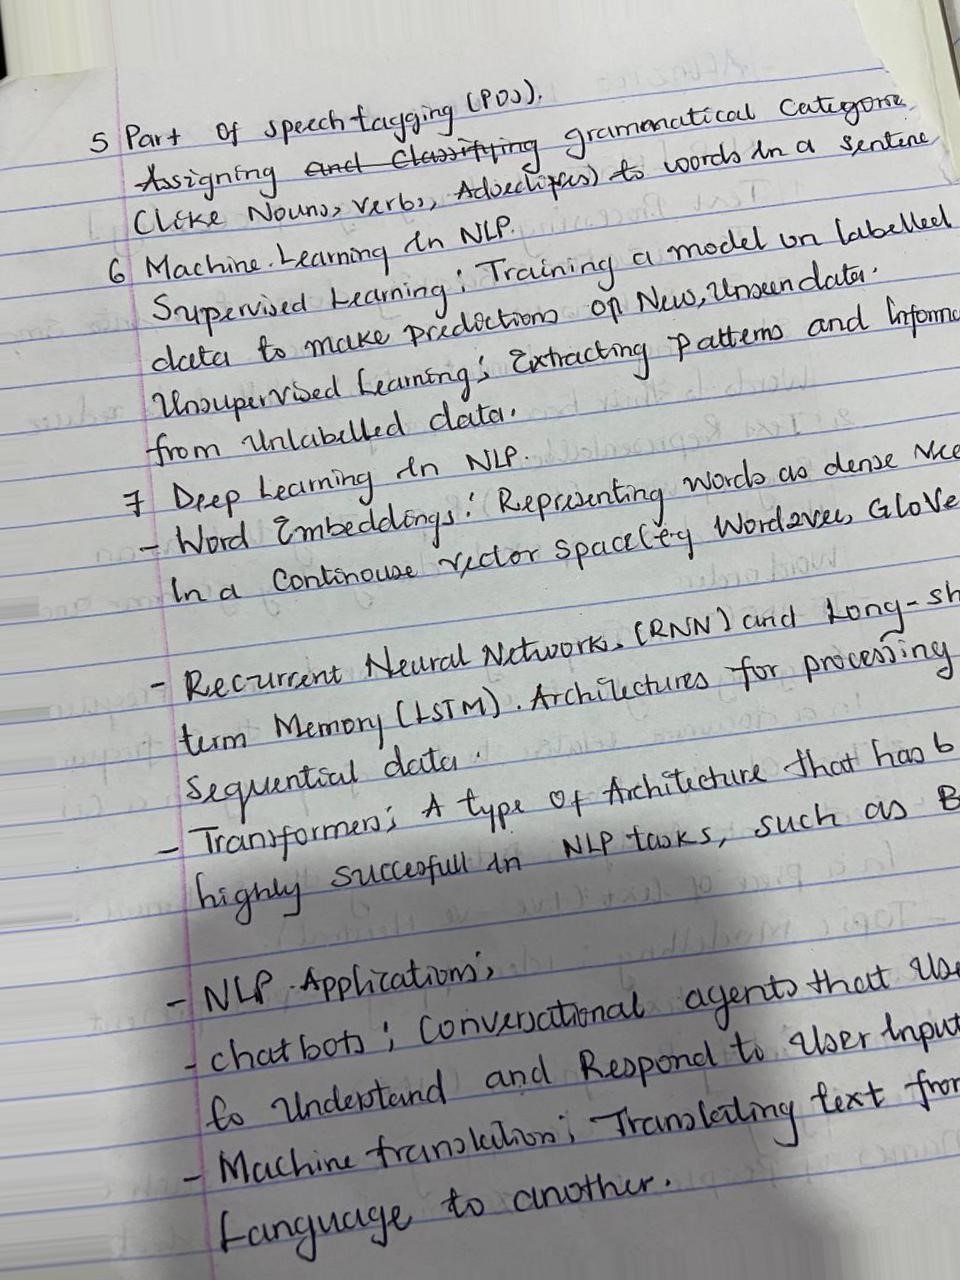 5 Part Of speech tagging (POS).
Assigning and Classifying grammatical Categorie
(Like Nouns, verbs, Adjectives) to words In a sentene
6 Machine Learning In NLP.
Supervised Learning: Training a model on labelled
data to make predictions on New, Unseen data.
Unsupervised Learning; Extracting patterns and Informa
from Unlabelled data.
7 Deep Learning In NLP.
- Word Embeddings: Representing words as dense Vec
In a Continouse vector space (eg Word2vec, GloVe
- Recurrent Neural Networks (RNN) and Long-sh
term Memory (LSTM). Architectures for processing
Sequential data.
- Transformers; A type Of Architecture that has b
highly succesfull In NLP tasks, such as B
- NLP Applications;
- chatbots; Conversational agents that Use
to Understand and Respond to User Input
- Machine translation; Translating text from
Language to another.